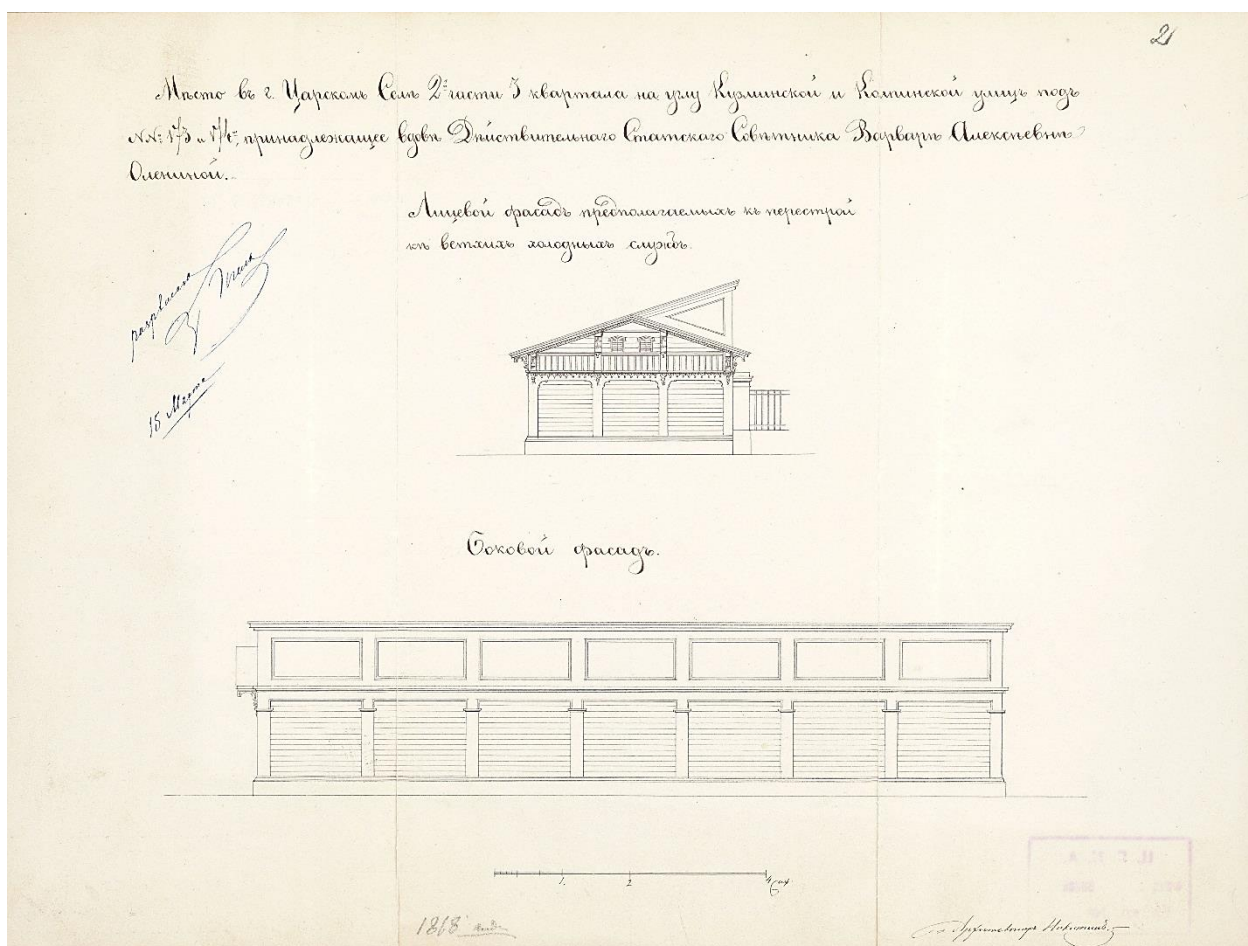 2
Мѣсто въ г. Царскомъ Селѣ 2й части 3 квартала на углу Кузминской и Колпинской улицъ подъ
№№: 173 и 174й, принадлежащее вдовѣ Дѣйствительнаго Статскаго Совѣтника Варварѣ Алексѣевнѣ
Олениной.
Лицевой фасадъ предполагаемыхъ къ перестрой
кѣ ветхихъ холодныхъ службъ.
15 Марта
Боковой фасадъ.
1. 2 4 саж.
1868
Архитекторъ Никитинъ.